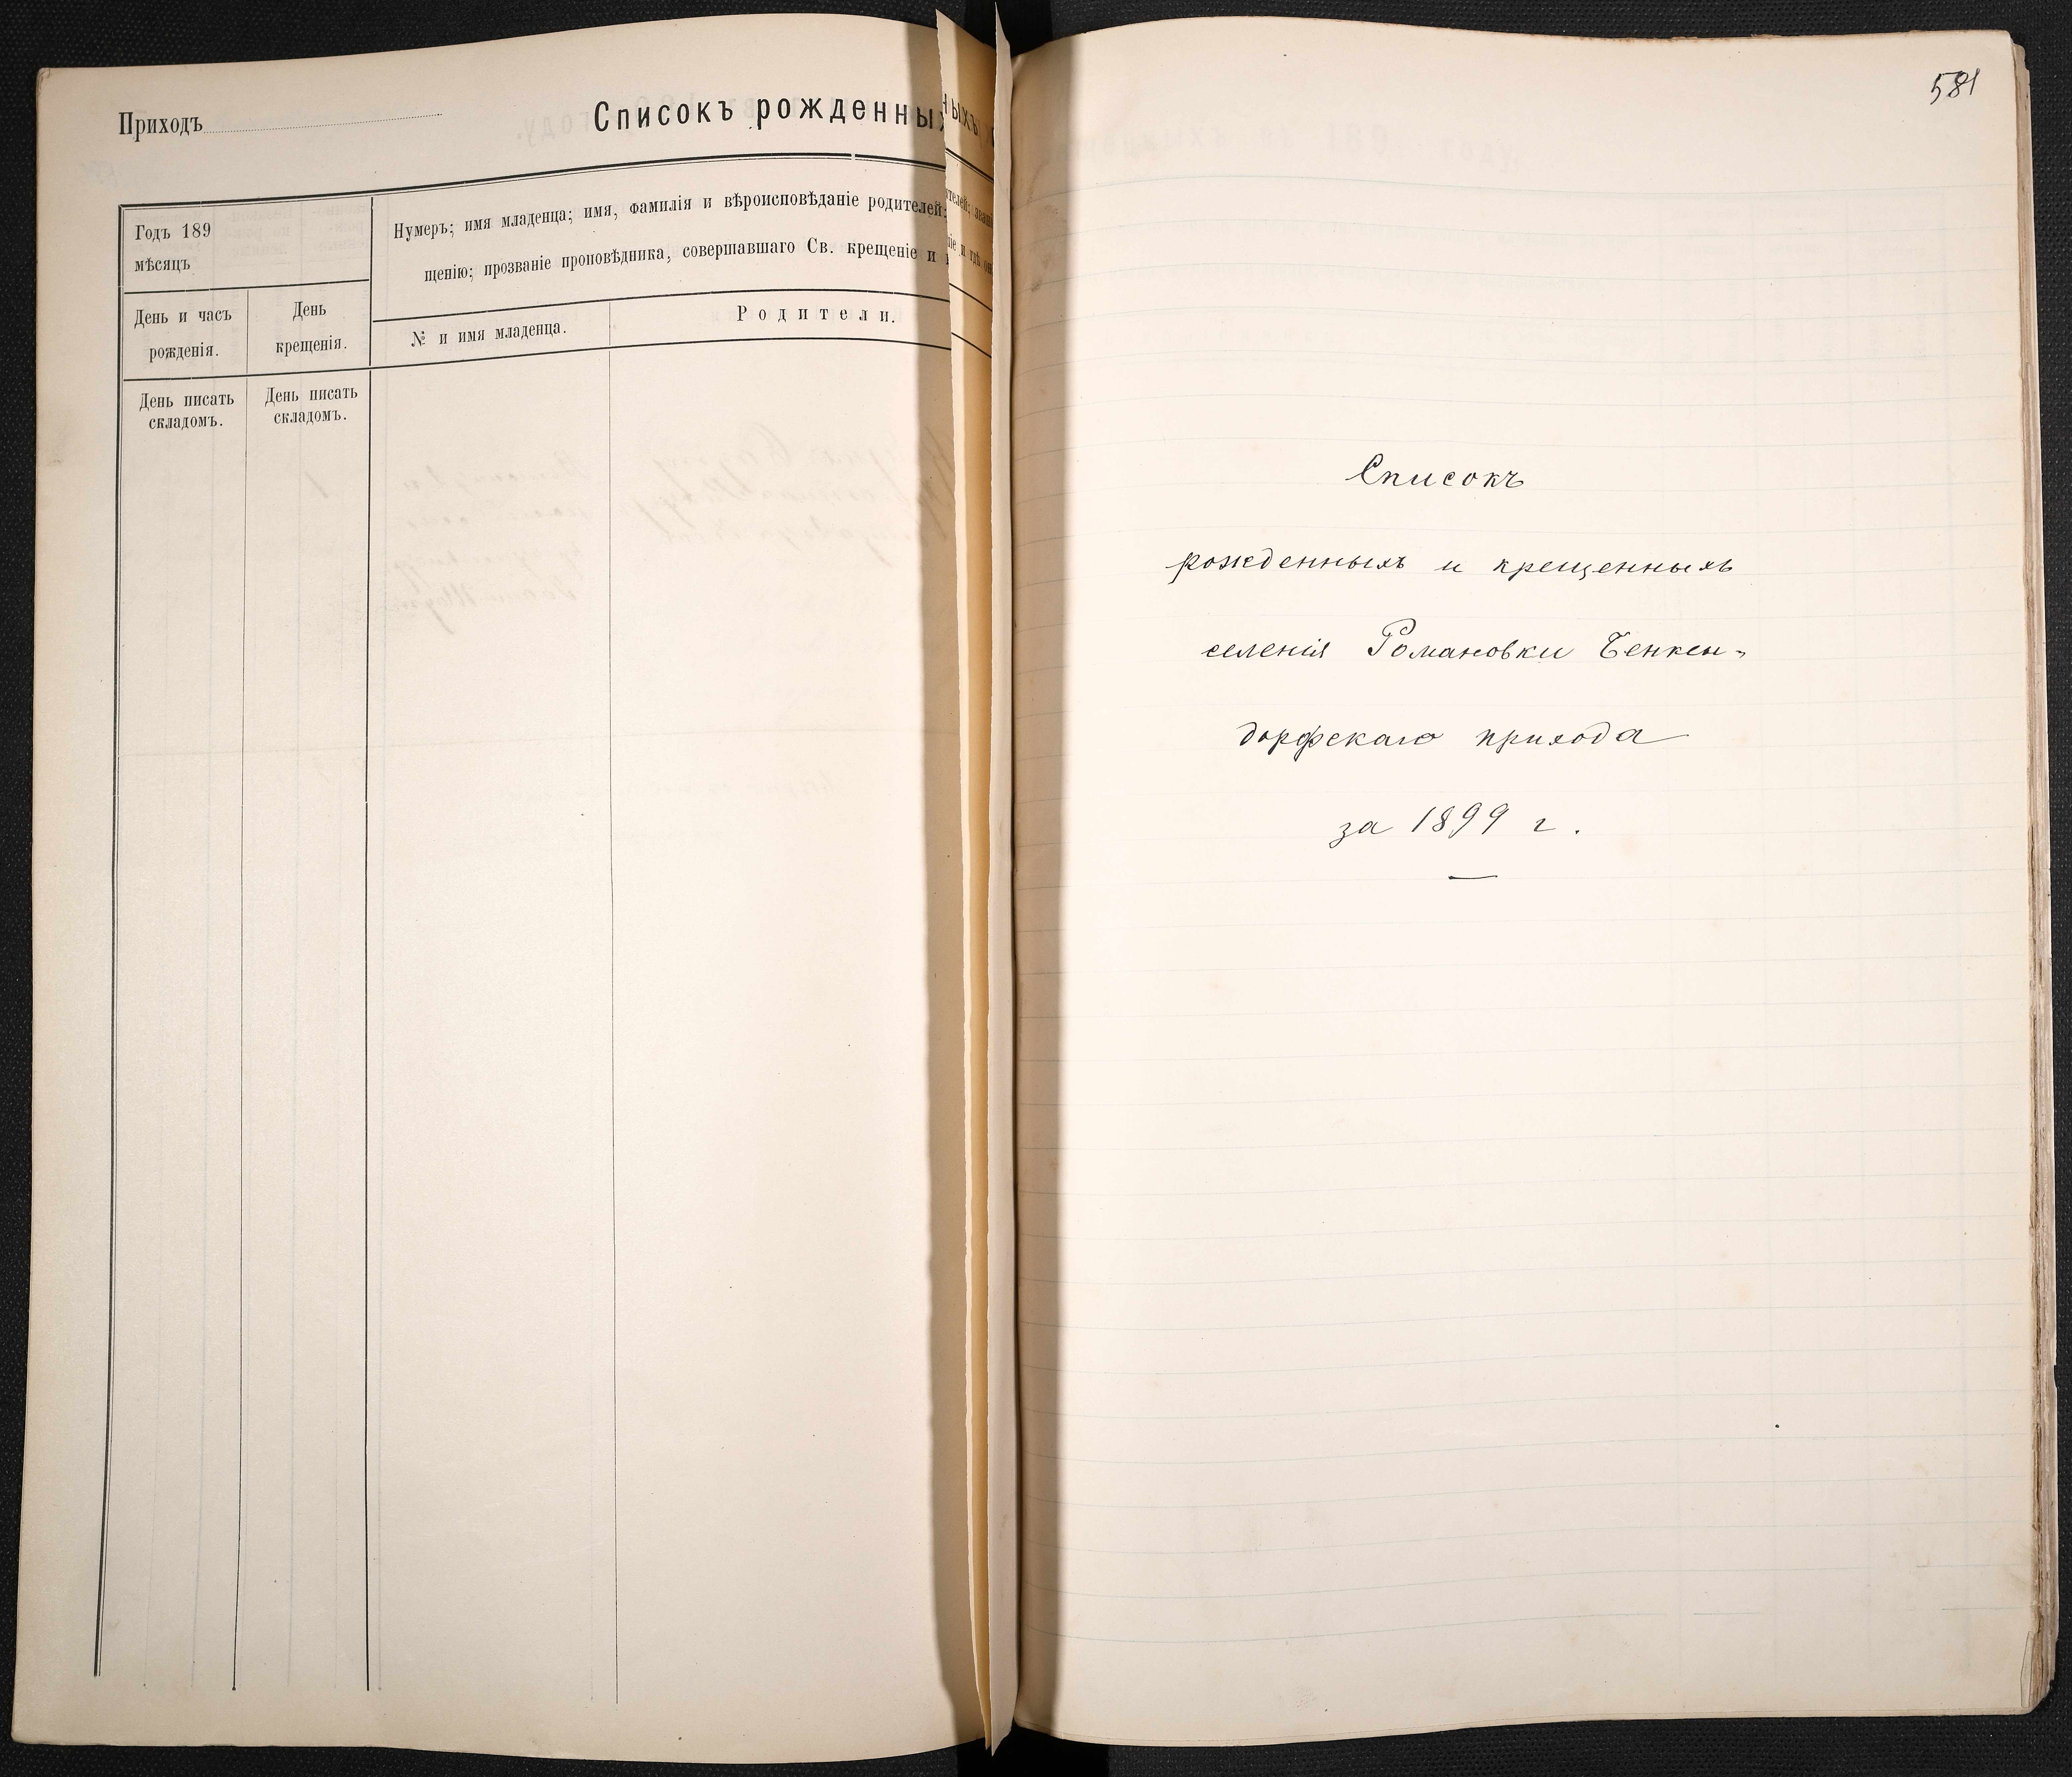 Приходъ
Списокъ рожденных
Годъ 189
мѣсяцъ
Нумеръ; имя младенца; имя, фамилія и вѣроисповѣданіе родителей;
щенію; прозваніе проповѣдника, совершавшаго Св. крещеніе и
День и часъ
рожденія.
День
крещенія.
№ и имя младенца.
Родители.
День писать
складомъ.
День писать
складомъ.
581
Списокъ
рожденныхъ и крещенныхъ
селенія Романовки Бенкен-
дорфскаго прихода
за 1899 г.